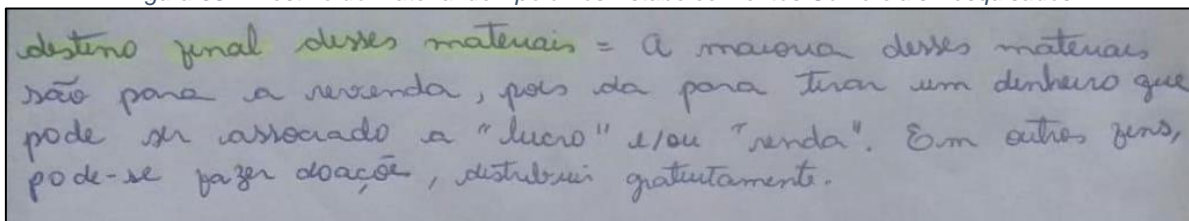 destino final desses materiais = a maioria desses materiais
são para a revenda, pois da para tirar um dinheiro que
pode ser associado a "lucro" e/ou "renda". Em outros fins,
pode-se fazer doaçõe, distribuir gratuitamente.